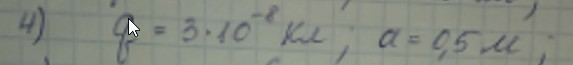 4) q = 3·10⁻⁸ Кл; a = 0,5 м;